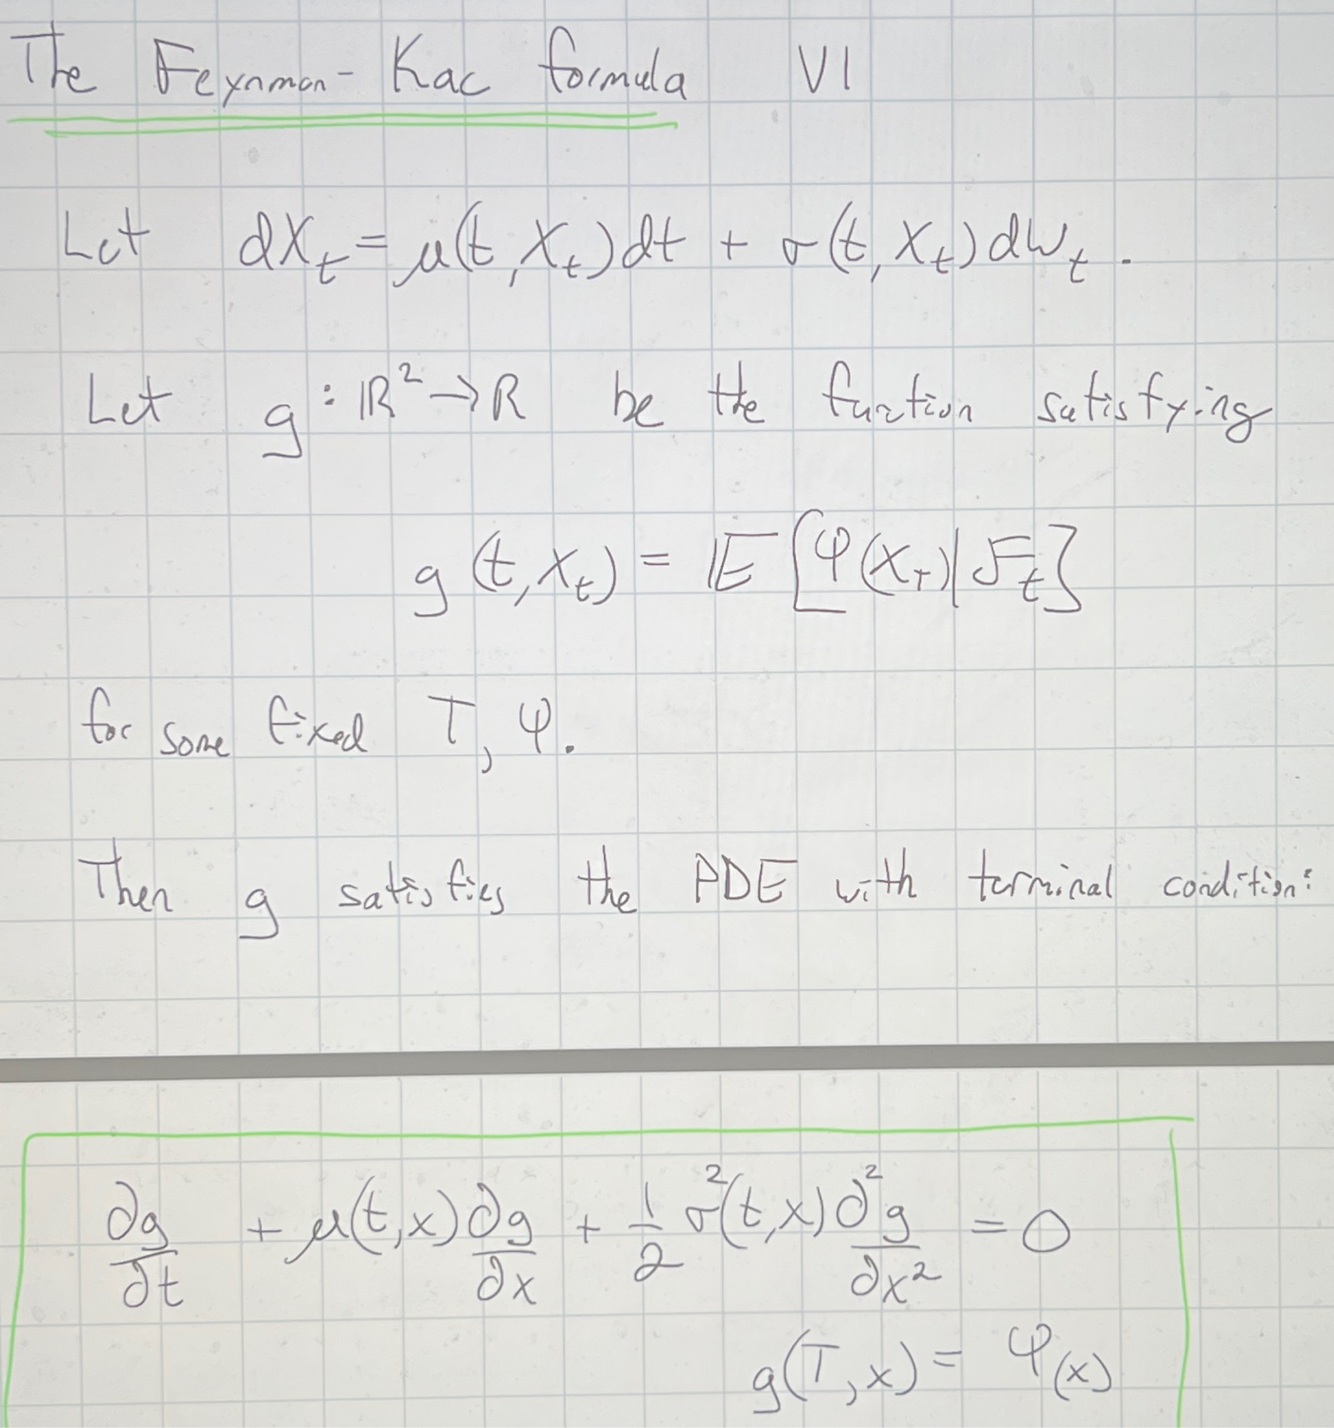 The Feynman-Kac formula V1
Let dX_t = μ(t, X_t)dt + σ(t, X_t)dW_t.
Let g : ℝ² → ℝ be the function satisfying
g(t, X_t) = 𝔼[φ(X_T)|ℱ_t]
for some fixed T, φ.
Then g satisfies the PDE with terminal condition:
∂g/∂t + μ(t,x) ∂g/∂x + 1/2 σ²(t,x) ∂²g/∂x² = 0
g(T,x) = φ(x)